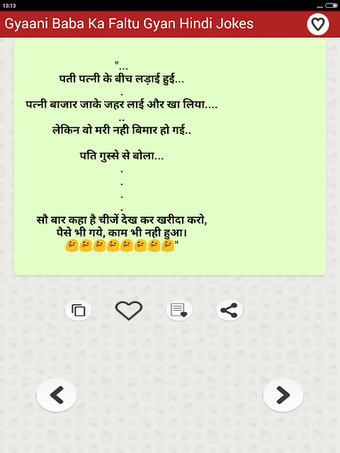 13:13
Gyaani Baba Ka Faltu Gyan Hindi Jokes
"...
पती पत्नी के बीच लड़ाई हुई...
.
पत्नी बाजार जाके जहर लाई और खा लिया....
..
लेकिन वो मरी नही बिमार हो गई..
पति गुस्से से बोला...
.
.
.
.
सौ बार कहा है चीजें देख कर खरीदा करो,
पैसे भी गये, काम भी नही हुआ।
🤔🤔🤔🤔🤔🤔🤔🤔"